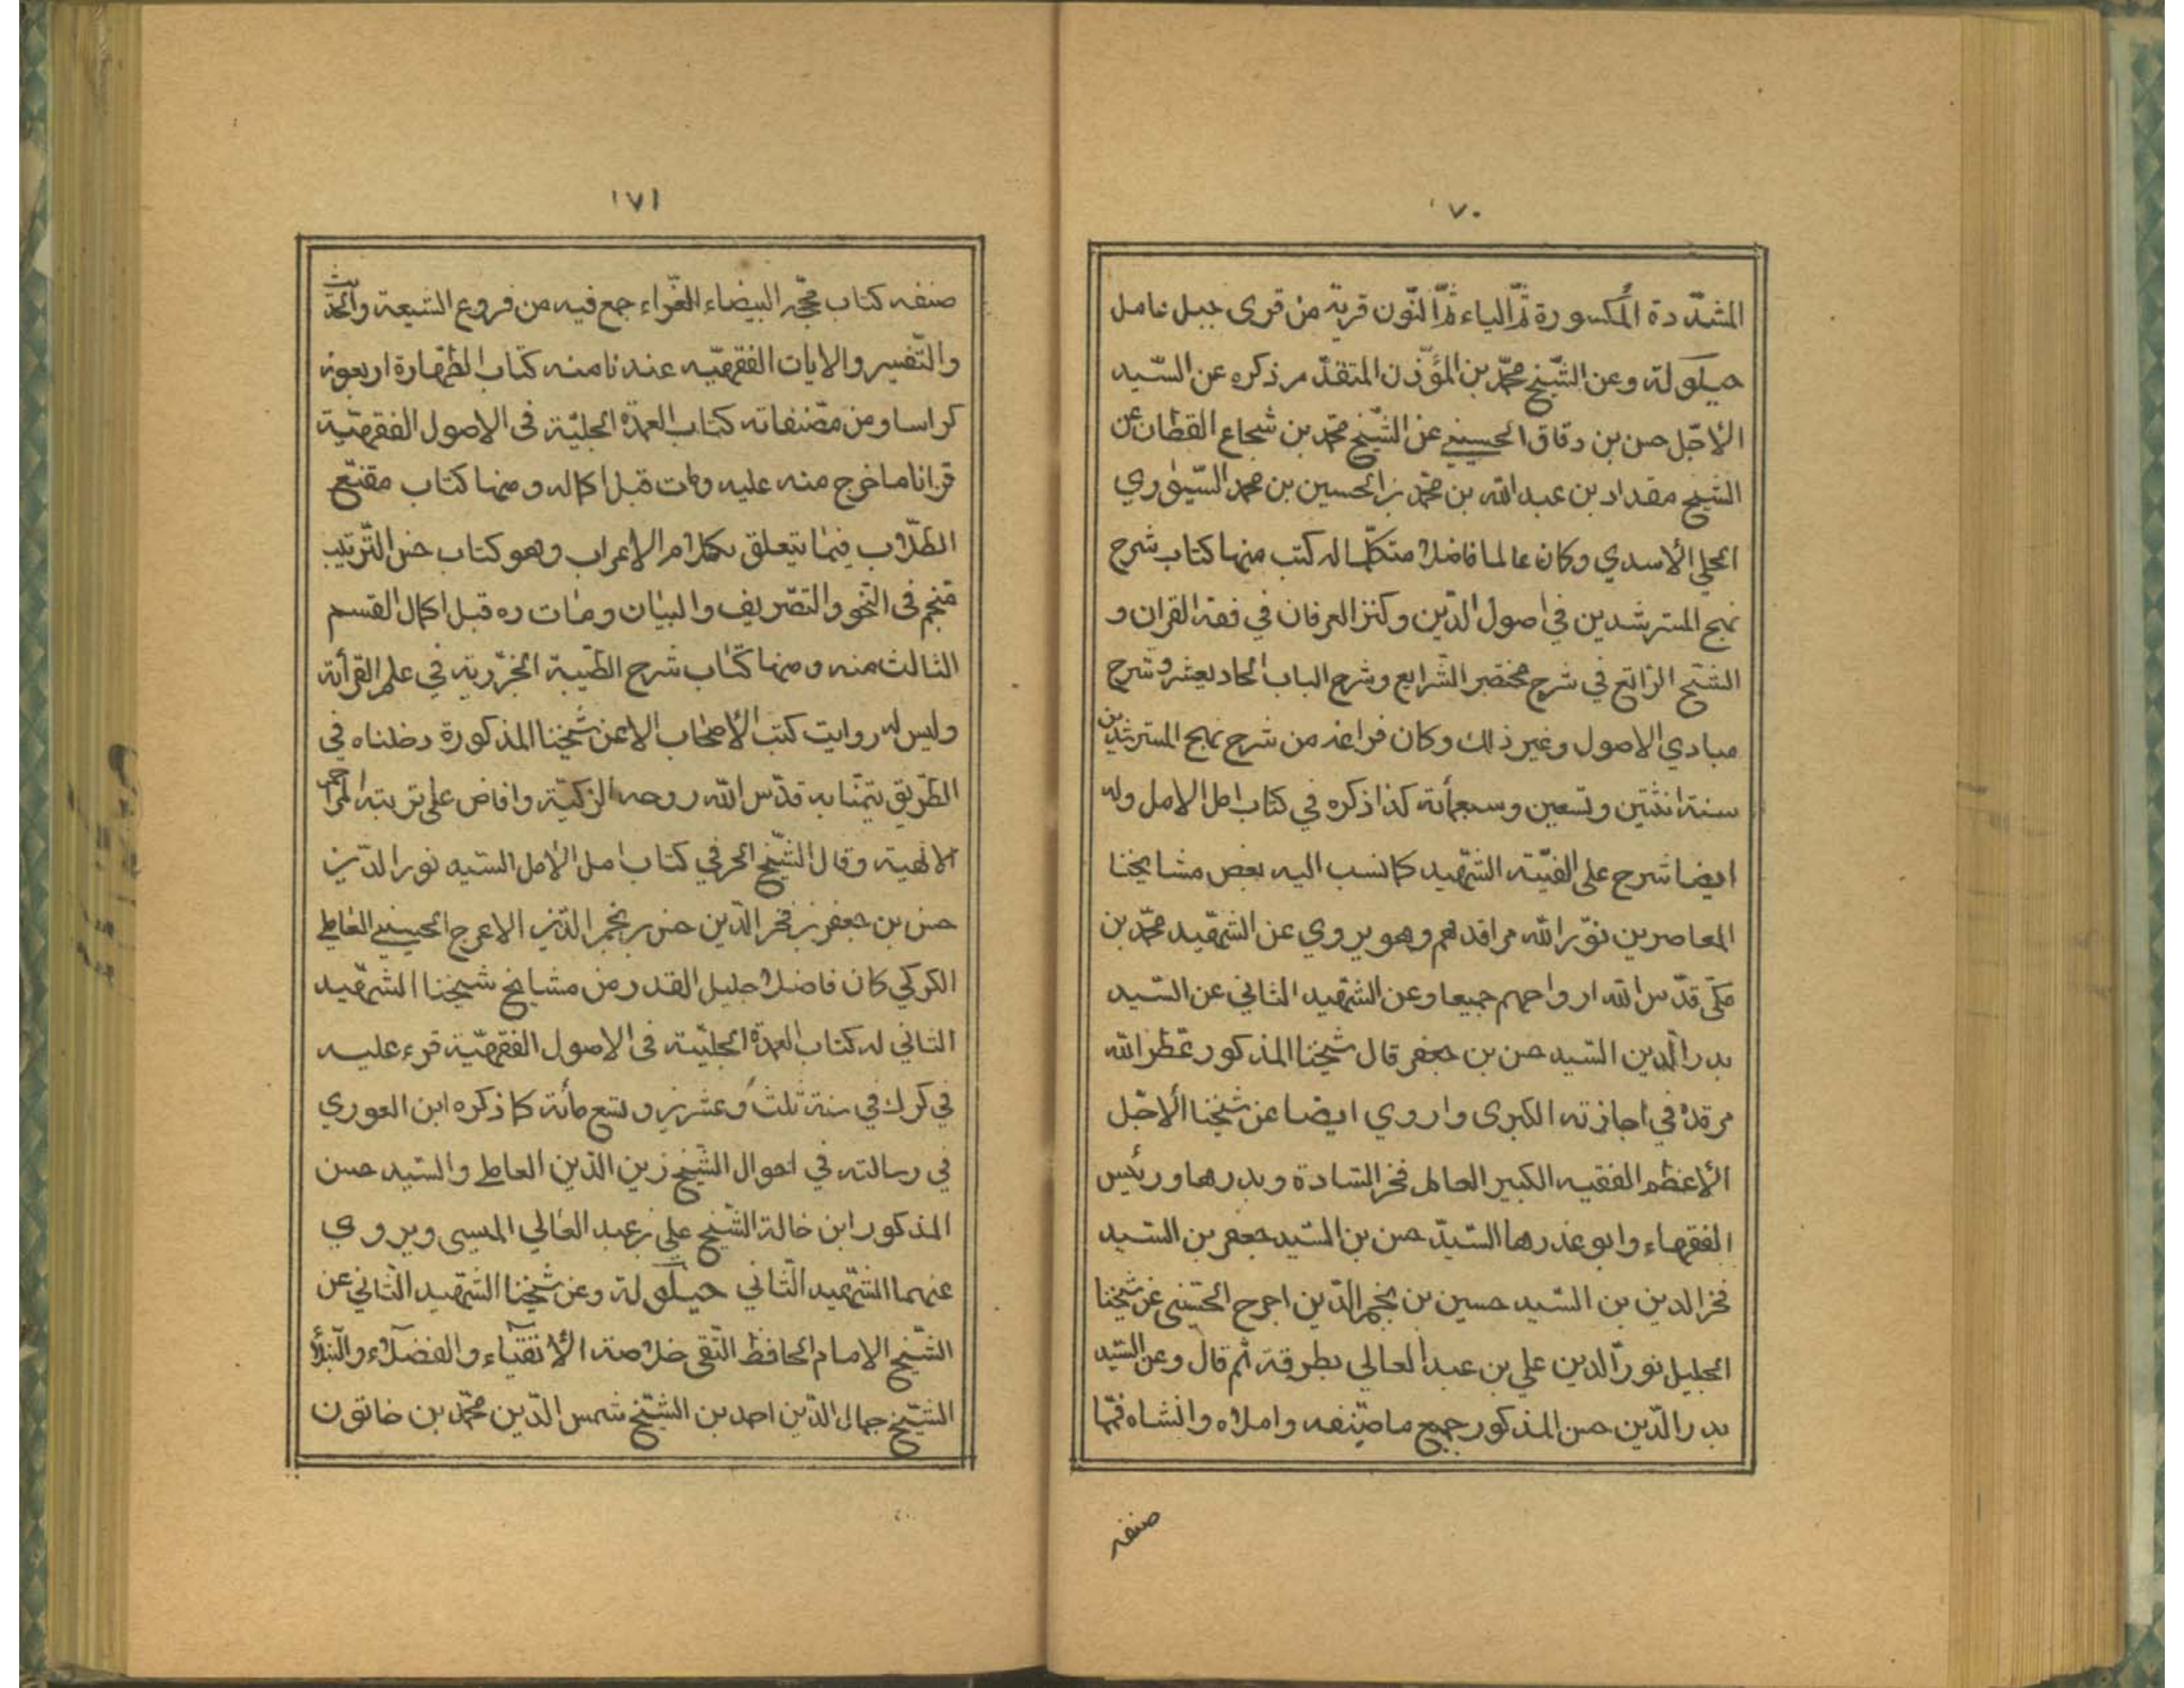 ١٧٠
المشدّدة المكسورة ثمّ الياء ثمّ النّون قرية من قرى جبل عامل
حيلولة وعن الشّيخ محمّد بن المؤذّن المتقدّم ذكره عن السّيد
الأجّل حسن بن دقاق الحسيني عن الشّيخ محمّد بن شجاع القطان عن
الشّيخ مقداد بن عبد الله بن محمّد بن الحسين بن محمد السّيوري
الحلي الأسدي وكان عالما فاضلا متكلّما له كتب منها كتاب شرح
نهج المسترشدين في اصول الدّين وكنز العرفان في فقه القران و
التنقيح الرّائع في شرح مختصر الشّرايع وشرح الباب الحادي عشر وشرح
مبادي الاصول وغير ذلك وكان فراغه من شرح نهج المسترشدين
سنة اثنتين وتسعين وسبعمأئة كذا ذكره في كتاب امل الامل وله
ايضا شرح على الفيّته الشّهيد كما نسب اليه بعض مشايخنا
المعاصرين نوّر الله مراقدهم وهو يروي عن الشّهيد محمّد بن
مكّي قدّس الله ارواحهم جميعا وعن الشّهيد الثاني عن السّيد
بدر الدّين السّيد حسن بن جعفر قال شيخنا المذكور عطّر الله
مرقده في اجازته الكبرى واروي ايضا عن شيخنا الأجّل
الأعظم الفقيه الكبير العالم فخر السّادة وبدرها ورئيس
الفقهاء وابو عذرها السّيّد حسن بن السّيد جعفر بن السّيد
فخر الدين بن السّيد حسين بن نجم الدّين اعرج الحسيني عن شيخنا
الجليل نور الدين علي بن عبد العالي بطرقه ثم قال وعن السّيد
بدر الدّين حسن المذكور جميع ما صنّفه واملاه وانشاه فممّا
صنفه
١٧١
صنفه كتاب محجّه البيضاء الغرّاء جمع فيه من فروع الشيعة والحديث
والتّفسير والايات الفقهيّه عندنا منه كتاب الطّهارة اربعون
كراسا ومن مصّنفاته كتاب العمدة الجليّة في الاصول الفقهيّة
قرانا ما خرج منه عليه ومات قبل اكماله ومنها كتاب مقنع
الطّلاب فيما يتعلق بكلام الاعراب وهو كتاب حسن التّرتيب
ضخم في النّحو والتصّريف والبيان ومات ره قبل اكمال القسم
الثالث منه ومنها كتاب شرح الطّيبة الجزرية في علم القرأئة
وليس له روايت كتب الأصحاب الا عن شيخنا المذكورة دخلناه في
الطّريق تيمّنا به قدّس الله روحه الزكيّة وافاض على تربته المراحم
الالهية وقال الشّيخ الحر في كتاب امل الأمل السّيد نور الدّين
حسن بن جعفر بن فخر الدّين حسن بن نجم الدّين الاعرج الحسيني العاملي
الكركي كان فاضلا جليل القدر من مشايخ شيخنا الشّهيد
الثاني له كتاب العمدة الجليّة في الاصول الفقهيّة قرء عليه
في كرك في سنة ثلث وعشرين وتسع مأئة كما ذكره ابن العوري
في رسالته في احوال الشّيخ زين الدّين العاملي والسّيد حسن
المذكور ابن خالة الشّيخ علي بن عبد العالي الميسي ويروي
عنهما الشّهيد الثّاني حيلولة وعن شيخنا الشّهيد الثّاني عن
الشّيخ الامام الحافظ التّقي خلاصة الأتقياء والفضلاء والنبلاء
الشّيخ جمال الدّين احمد بن الشّيخ شمس الدّين محمّد بن خاتون